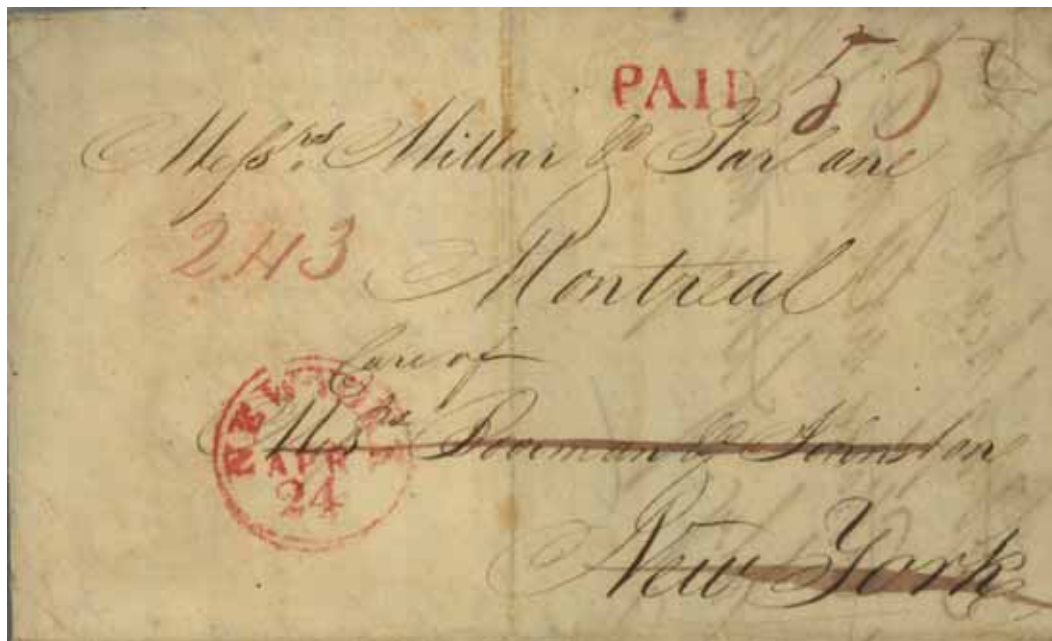 PAID 55
Messrs. Millar & Parlane
243
Montreal
Care of
Messrs Boorman & Johnston
New York
NEW YORK
APR
24